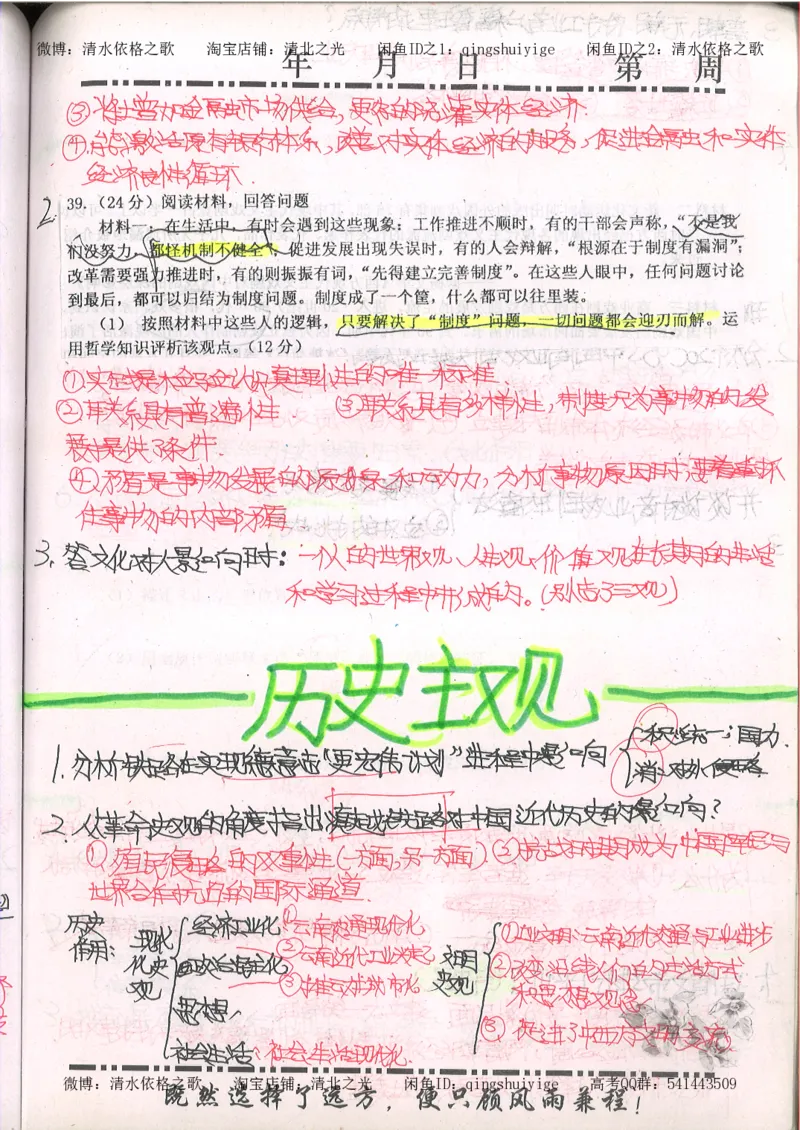 微博：清水依格之歌 淘宝店铺：清北之光 闲鱼ID之1：qingshuiyige 闲鱼ID之2：清水依格之歌
年 月 日 第 周
③将增加金融市场供给，更好的浇灌实体经济.
④能激活现有银行体系，改善对实体经济的服务，促进金融和实体
经济良性循环.
2. 39.（24分）阅读材料，回答问题
材料一：在生活中，有时会遇到这些现象：工作推进不顺时，有的干部会声称，“不是我
们没努力，都怪机制不健全”；促进发展出现失误时，有的人会辩解，“根源在于制度有漏洞”；
改革需要强力推进时，有的则振振有词，“先得建立完善制度”。在这些人眼中，任何问题讨论
到最后，都可以归结为制度问题。制度成了一个筐，什么都可以往里装。
（1） 按照材料中这些人的逻辑，只要解决了“制度”问题，一切问题都会迎刃而解。运
用哲学知识评析该观点。（12分）
①实践是检验认识真理性的唯一标准
②联系具有普遍性 ③联系具有多样性，制度只为事物的发
展提供了条件.
④矛盾是事物发展的源泉和动力，分析事物原因时要着重抓
住事物的内部矛盾
3. 答文化对人影响时：一个人的世界观、人生观、价值观在长期的生活
和学习过程中形成的。（别忘了三观）
历史主观
1. 分析铁路在实现德意志“更宏伟计划”进程中影响 积：统一；国力.
消：对外侵略
2. 从革命史观的角度指出滇越铁路对中国近代历史的影响？
①殖民侵略的双重性（一方面，另一方面） ③抗战初期成为中国军民与
世界合作抗日的国际通道.
历史
作用： 现代
化史
观 经济工业化 ①云南交通现代化
②云南近代工业兴起
③推动城市化
政治民主化
思想
社会生活：社会生活现代化.
文明
史观 ①工业文明：云南近代交通与工业进步
②改变沿线人们的生活方式
和思想观念
③促进了中西方文明交流
微博：清水依格之歌 淘宝店铺：清北之光 闲鱼ID：qingshuiyige 高考QQ群：541443509
既然选择了远方，便只顾风雨兼程！